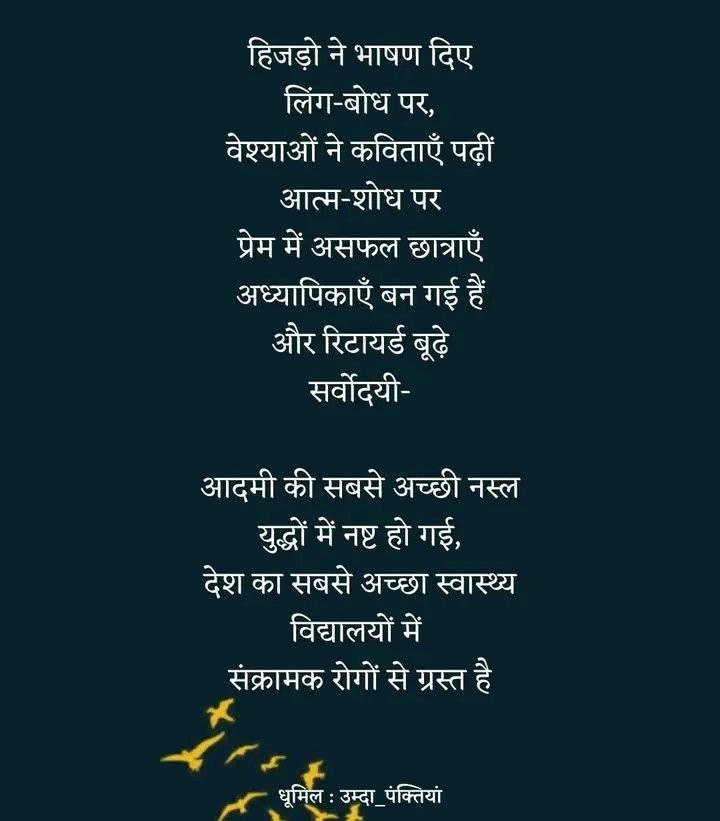 हिजड़ो ने भाषण दिए
लिंग-बोध पर,
वेश्याओं ने कविताएँ पढ़ीं
आत्म-शोध पर
प्रेम में असफल छात्राएँ
अध्यापिकाएँ बन गई हैं
और रिटायर्ड बूढ़े
सर्वोदयी-
आदमी की सबसे अच्छी नस्ल
युद्धों में नष्ट हो गई,
देश का सबसे अच्छा स्वास्थ्य
विद्यालयों में
संक्रामक रोगों से ग्रस्त है
धूमिल : उम्दा_पंक्तियां